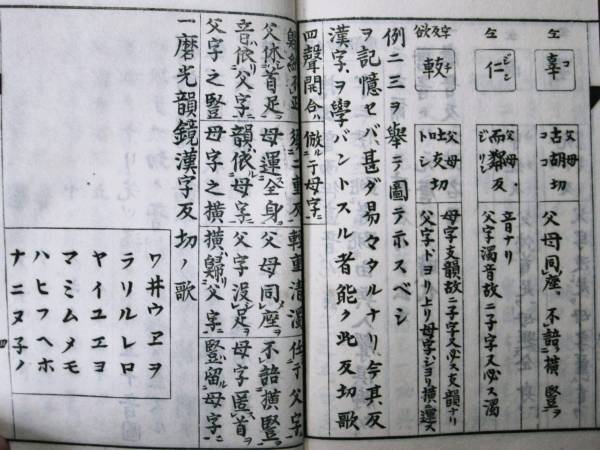 仝 辜 コ 父母 古胡切 ココ 父母同座ハ不論横竪ヲ
仝 仁 ジン 父母 而鄰反 ジリン 音ナリ
父字濁音故ニ子字又必ス濁
父母 吐支切 トシ 母字支韻故ニ子字又必ス支韻ナリ
父字トヨリ上リ母字シヨリ横運ス
例二三ヲ舉テ圖テホスベシ
ヲ記憶セバ甚ダ易々タルナリ今其反
漢字ヲ學バントスル者能ク此反切歌
四聲開合ハ倣フ于母字ニ
二重反 輕重清濁 任テ父字ニ
父休首足ヲ 母運全身ヲ 父母同座ハ 不論横竪ヲ
音依父字ニ 韻依母字ニ 父字没足ヲ 母字匿首ヲ
父字之竪 母字之横 横歸父字ニ 竪留母字ニ
一磨光韻鏡漢字反切ノ歌
ワ井ウヱヲ
ラリルレロ
ヤイユエヨ
マミムメモ
ハヒフヘホ
ナニヌ子ノ
四